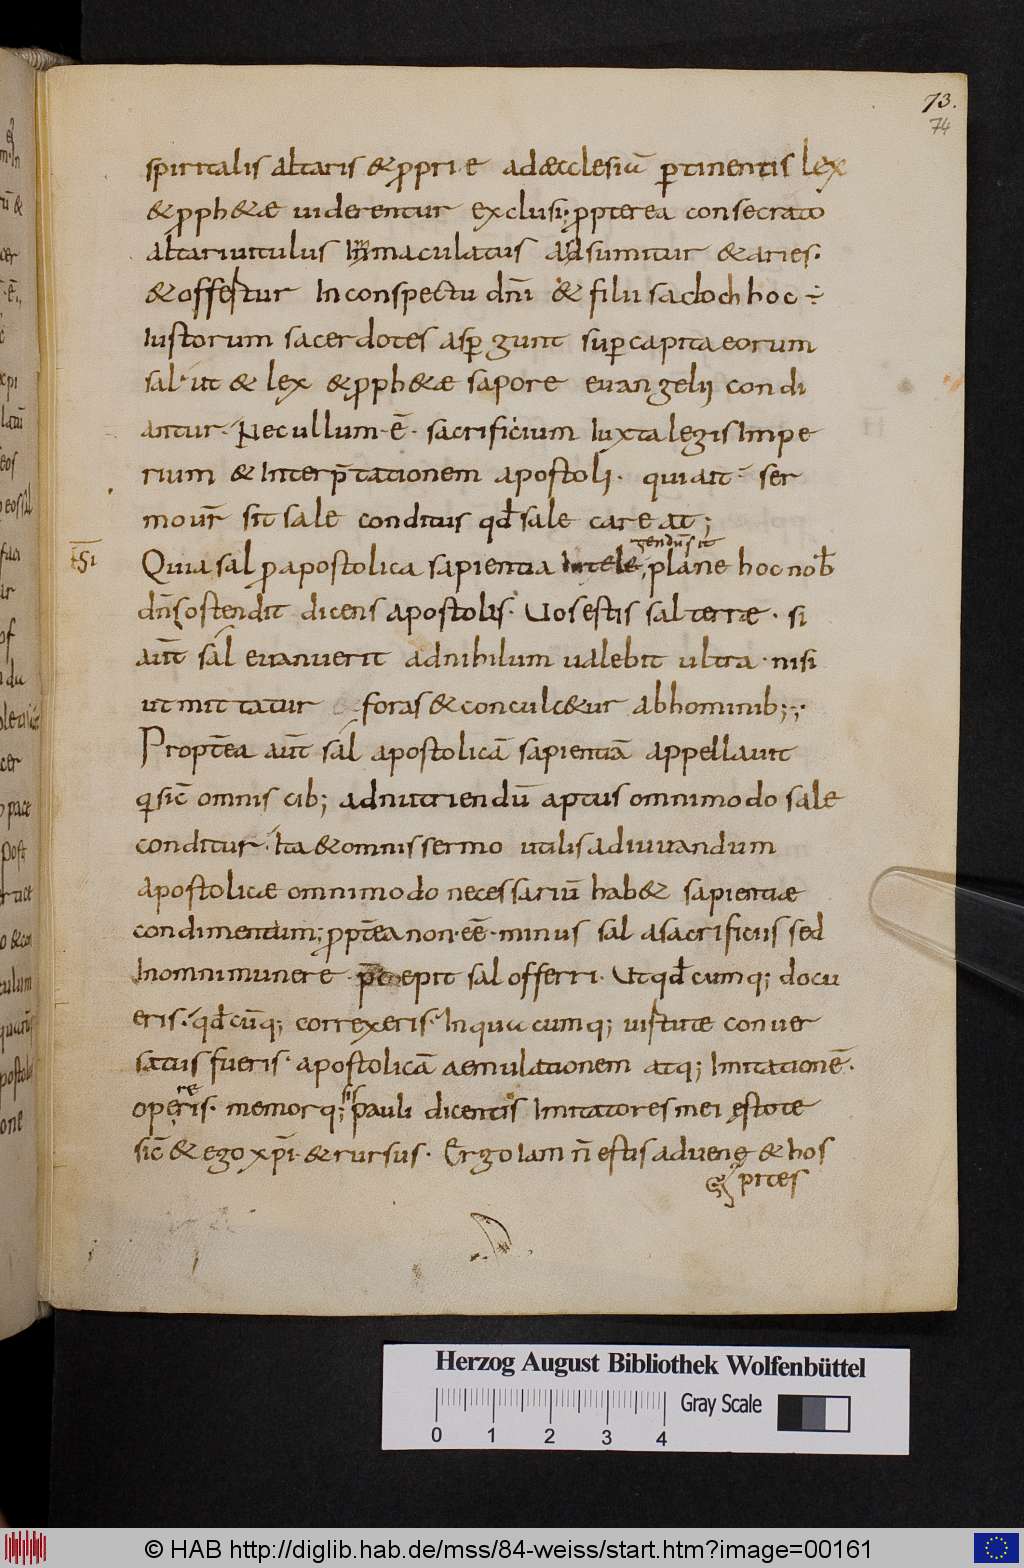 73.
74
spiritalis altaris & ꝓpri·e adæcclesiā ꝑtinentis lex
& ꝓph&æ uiderentur exclusi; ꝓpterea consecrato
altari uitulus Immaculatus adsumitur & aries.
& offertur In conspectu dn̄i & filii sadoch hoc ÷
Iustorum sacerdotes asꝑgunt suꝑ capita eorum
sal· ut & lex & ꝓph&æ sapore euangelij condi
antur. Pecullum·ē· sacrificium Iuxta legis Impe
rium & Interp̄tationem apostoli· qui ait· ser
mo ur̄ sit sale conditus qđ sale careat;
Quia sal ꝑ apostolica sapientia Intele, plane hoc nob̄
gendus sit
dn̄s ostendit dicens apostolis· Uos estis sal terræ· si
aut̄ sal euanuerit ad nihilum ualebit ultra· nisi
ut mittatur foras & conculc&ur ab hominib;;·
Propt̄ea aut̄ sal apostolicā sapientiā appellauit
q sic̄ omnis cib; ad nutriendū aptus omnimodo sale
conditur· Ita & omnis sermo utilis ad iuuandum
apostolicæ omnimodo necessariū hab& sapientiæ
condimentum; ꝓpt̄ea non·eē·minus sal a sacrificiis sed
In omni munere p̄cepit sal offerri· Ut qđcumq; docu
eris· qđcūq; correxeris· In quacumq; uirtute conuer
satus fueris· apostolicā aemulationem atq; Imitationē·
operis· memorq; pauli dicentis Imitatores mei estote
re
sis
sic̄ & ego xp̄i· & rursus· Ergo Iam n̄ estis aduenę & hos
pites
Herzog August Bibliothek Wolfenbüttel
Gray Scale
0 1 2 3 4
© HAB http://diglib.hab.de/mss/84-weiss/start.htm?image=00161